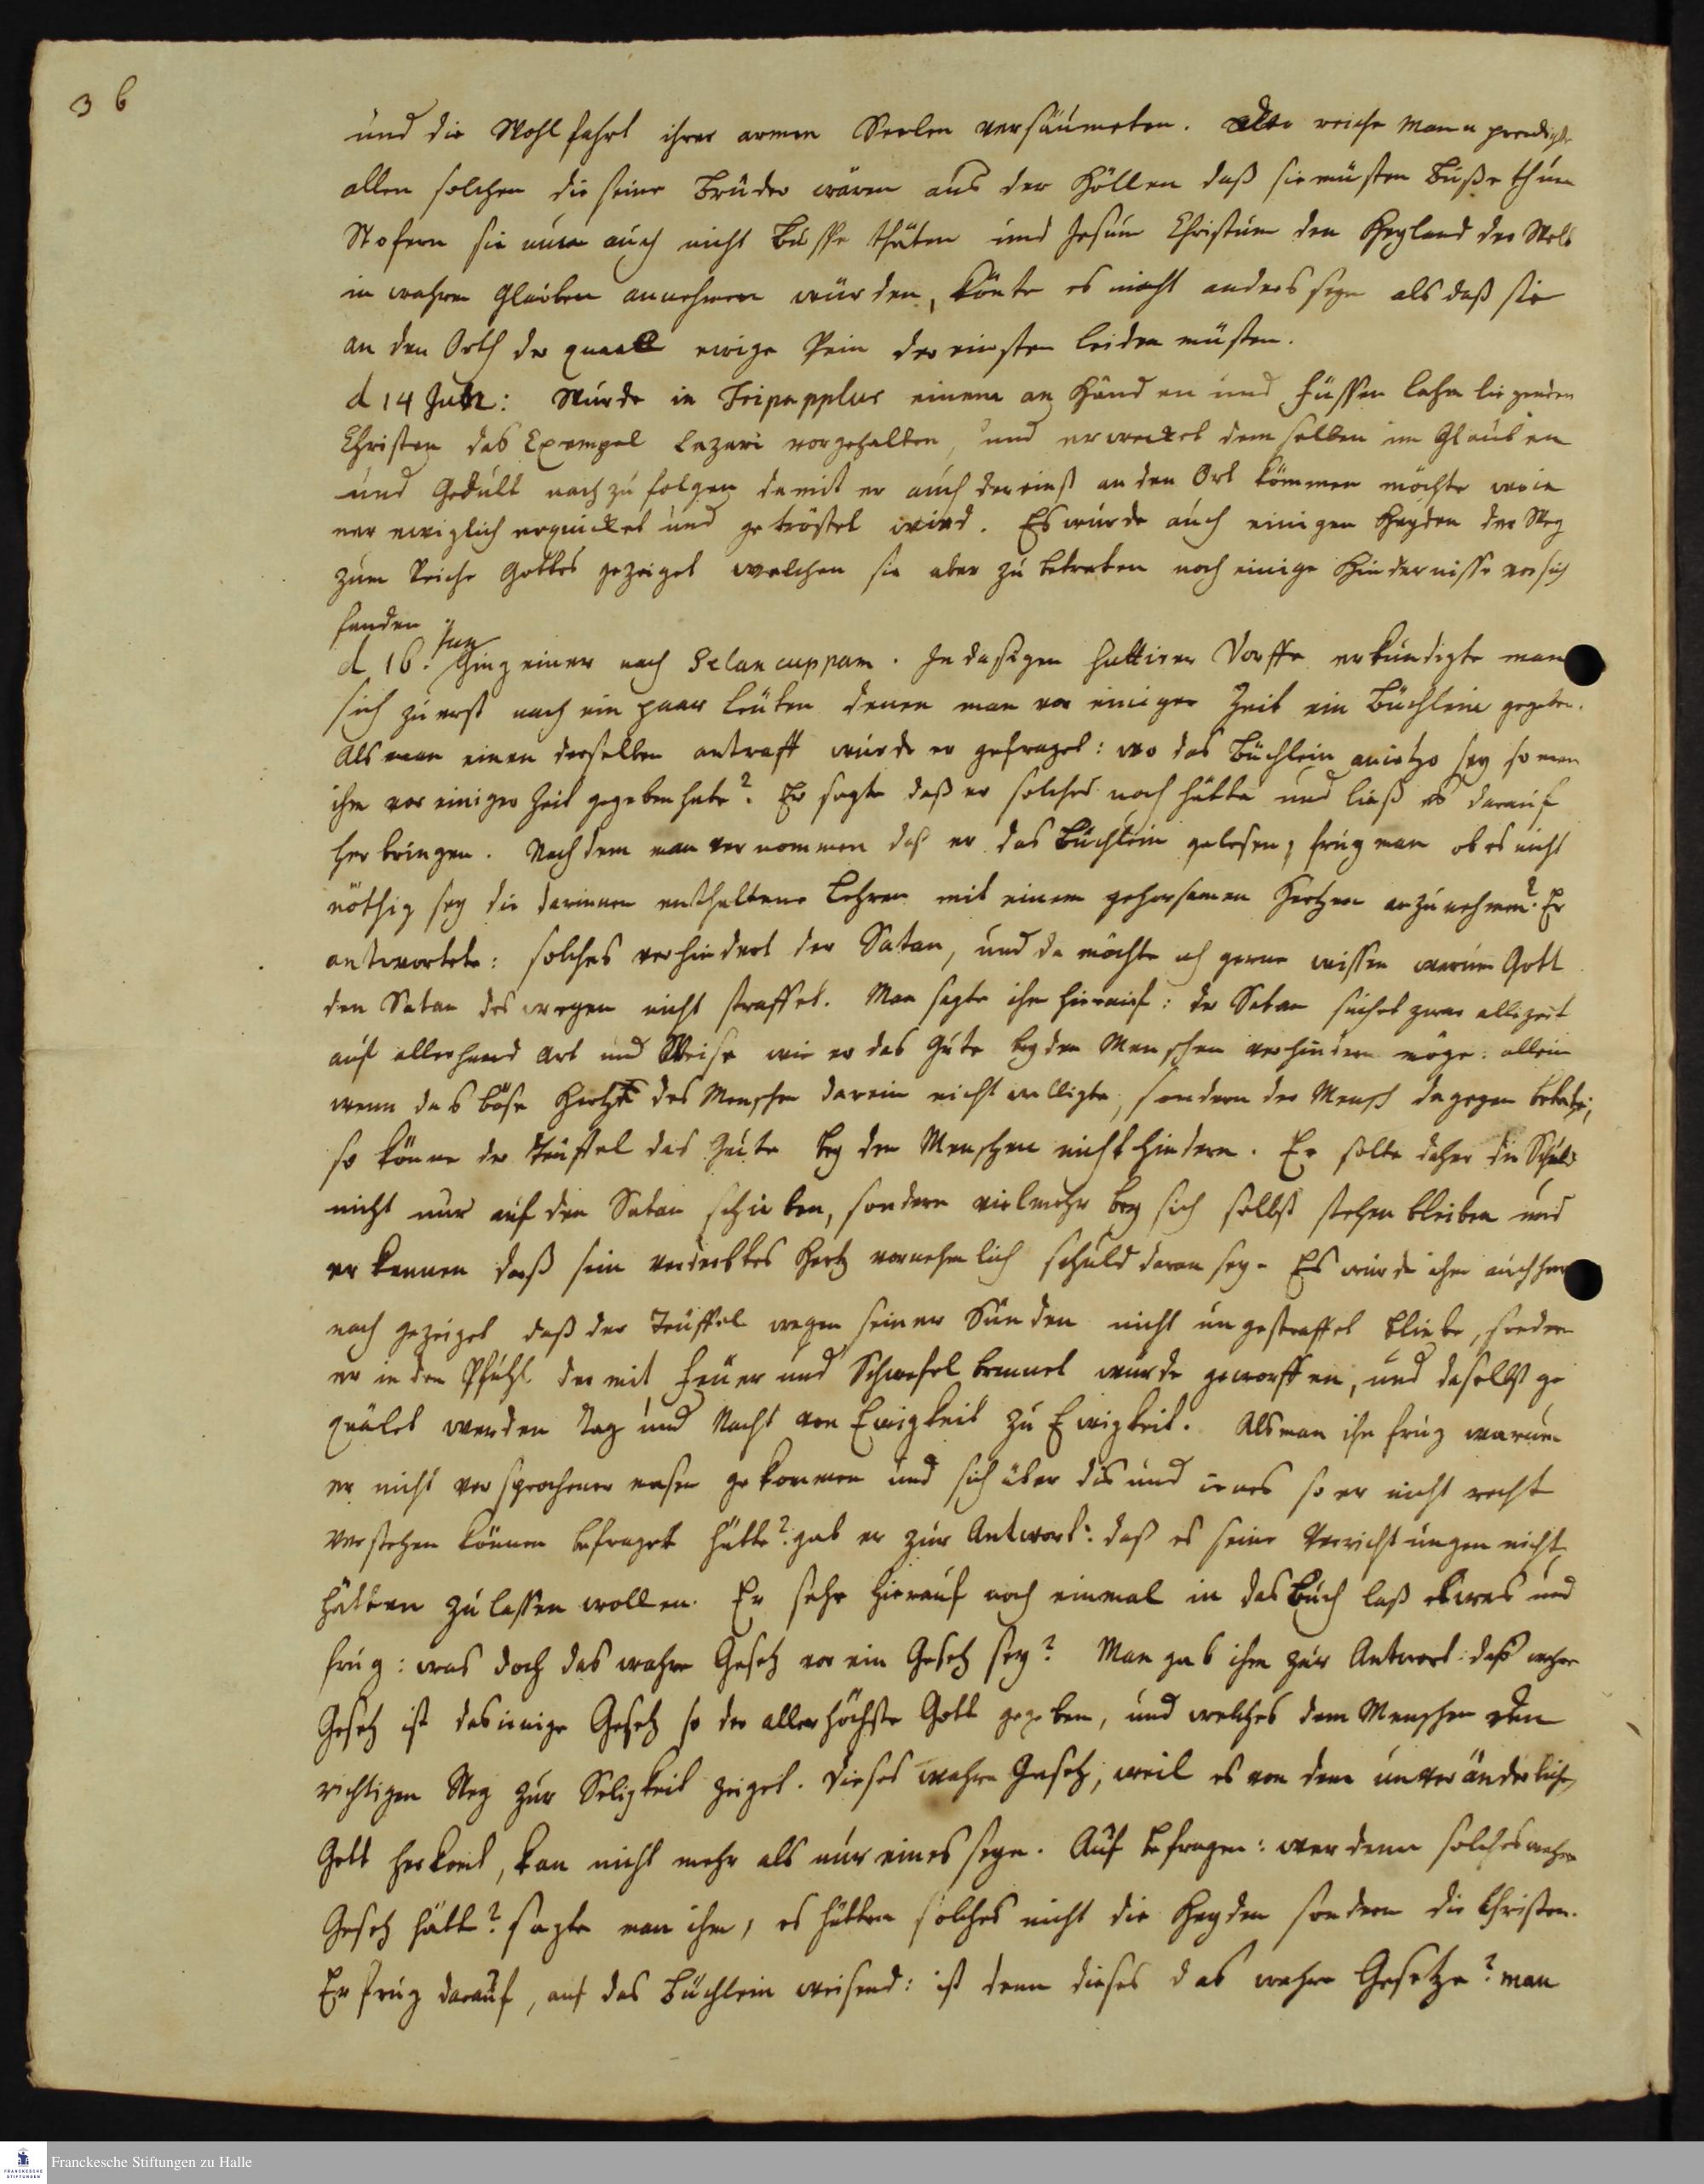 36
und die Wohlfahrt ihrer armen Seelen versäumeten. reiche Mann predigte
allen solchen die seine Brüder wären aus der Höllen daß sie müsten Buße thun
Wofern sie nun auch nicht Busse thäten und Jesum Christum den Heyland der Welt
in wahren Glauben annehmen würden, könte es nicht anders seyn als daß sie
an den Orth der quaal ewige Pein dereinsten leiden müsten.
d 14 Jun: Wurde in Tripapplur einem an Händen und Füssen lahm liegenden
Christen das Exempel Lazari vorgehalten, und erwecket demselben im Glauben
und Gedult nachzufolgen damit er auch dereinst an den Ort kommen möchte wo
er ewiglich erquicket und getröstet wird. Es wurde auch einigen Heyden der Weg
zum Reiche Gottes gezeiget welchen sie aber zu betreten noch einige Hindernisse vor sich
fanden.
d 16. Jun Ging einer nach Selancuppam. In dasigen Dorffe erkundigte man
sich zuerst nach ein paar Leuten denen man vor einiger Zeit ein Büchlein gegeben.
Als man einen derselben antraff wurde er gefraget: wo das Büchlein anietzo sey so man
ihm vor einiger Zeit gegeben habe? Er sagte daß er solches noch hätte und ließ es darauf
her bringen. Nachdem man vernommen daß er das Büchlein gelesen, frug man ob es nicht
nöthig sey die darinnen enthaltene Lehren mit einem gehorsamen Hertzen anzunehmen? Er
antwortete: solches verhindert der Satan, und da möchte ich gerne wissen warum Gott
den Satan deswegen nicht straffet. Man sagte ihm hierauf: der Satan suchet zwar allezeit
auf allerhand Art und Weise wie er das Gute bey den Menschen verhindern möge: allein
wenn das böse Hertz des Menschen darein nicht willigte, sondern der Mensch dagegen betete,
so könne der Teuffel das Gute bey den Menschen nicht hindern. Er solte daher die Schuld
nicht nur auf den Satan schieben, sondern vielmehr bey sich selbst stehen bleiben und
erkennen daß sein verderbtes Hertz vornehmlich schuld daran sey. Es wurde ihm auch her
nach gezeiget daß der Teuffel wegen seiner Sünden nicht ungestraffet bliebe, sondern
er in den Pfuhl der mit Feuer und Schwefel brennet würde geworffen, und daselbst ge
quälet werden Tag und Nacht von Ewigkeit zu Ewigkeit. Als man ihn frug warum
er nicht versprochener masen gekommen und sich über dis und ienes so er nicht recht
verstehen können befraget hätte? gab er zur Antwort: daß es seine Verrichtungen nicht
hätten zulassen wollen. Er sahe hierauf noch einmal in das Buch laß etwas und
frug: was doch das wahre Gesetz vor ein Gesetz sey? Man gab ihm zur Antwort: daß wahre
Gesetz ist dasienige Gesetz so der allerhöchste Gott gegeben, und welches dem Menschen den
richtigen Weg zur Seligkeit zeiget. Dieses wahre Gesetz, weil es von dem unveränderlichen
Gott herkomt, kan nicht mehr als nur eines seyn. Auf befragen: wer denn solches wahre
Gesetz hätte? sagte man ihm, es hätten solches nicht die Heyden sondern die Christen.
Er frug darauf, auf das Büchlein weisend: ist denn dieses das wahre Gesetze? man
Franckesche Stiftungen zu Halle